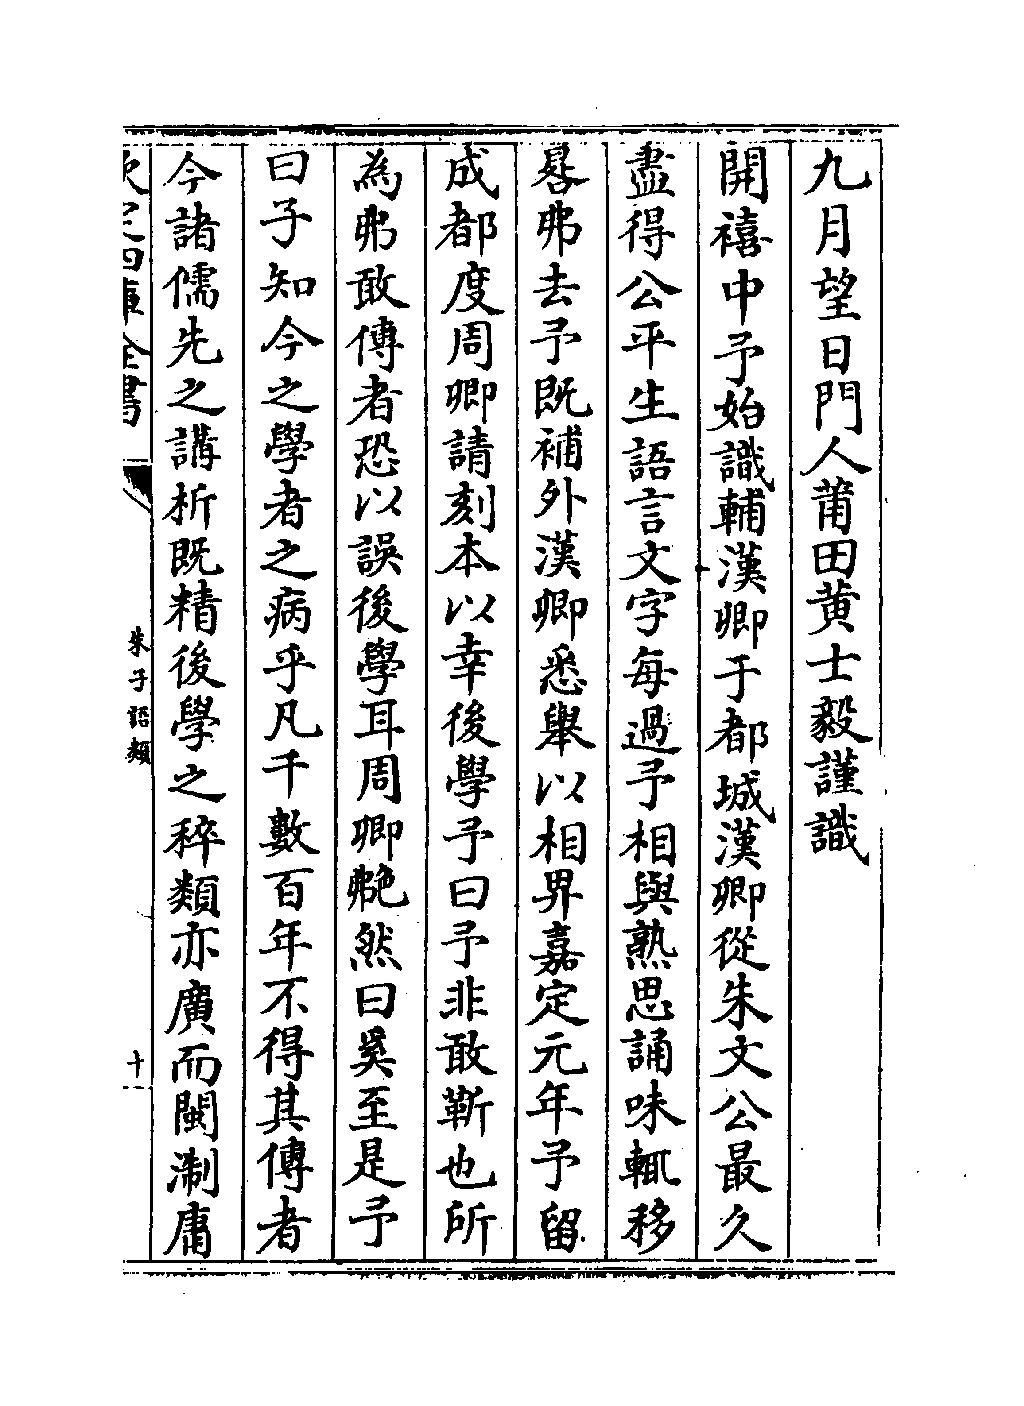 九月望日門人莆田黄士毅謹識
開禧中予始識輔漢卿于都城漢卿從朱文公最久
盡得公平生語言文字每過予相與熟思誦味輒移
晷弗去予既補外漢卿悉舉以相畀嘉定元年予留
成都度周卿請刻本以幸後學予曰予非敢靳也所
為弗敢傳者恐以誤後學耳周卿艴然曰奚至是予
曰子知今之學者之病乎凡千數百年不得其傳者
今諸儒先之講析既精後學之稡類亦廣而閩淛庸
欽定四庫全書
朱子語類
十一